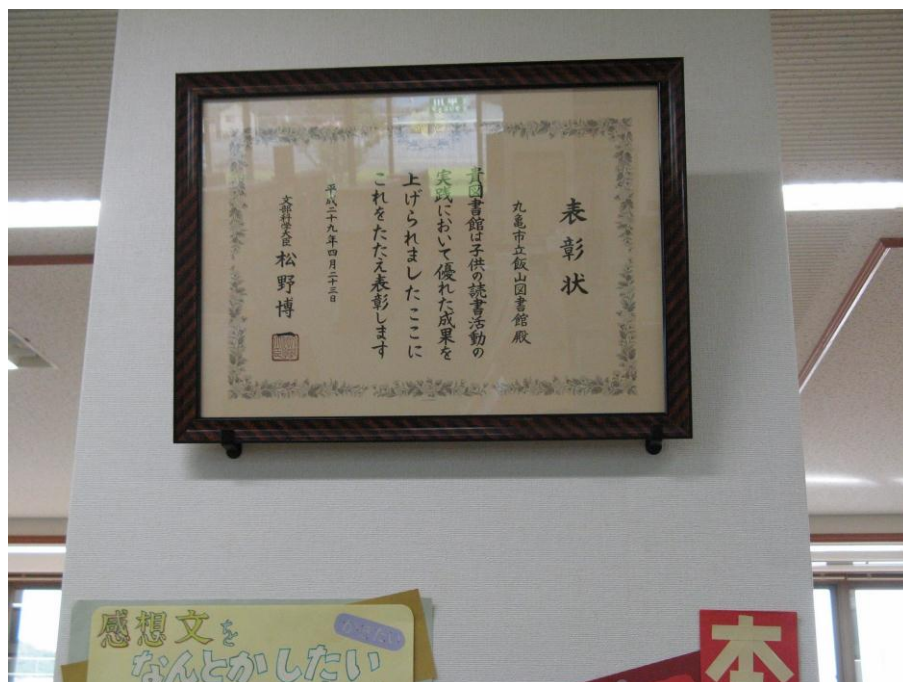 表彰状
丸亀市立飯山図書館殿
貴図書館は子供の読書活動の
実践において優れた成果を
上げられましたここに
これをたたえ表彰します
平成二十九年四月二十三日
文部科学大臣 松野博一
感想文を
なんとかしたい
本